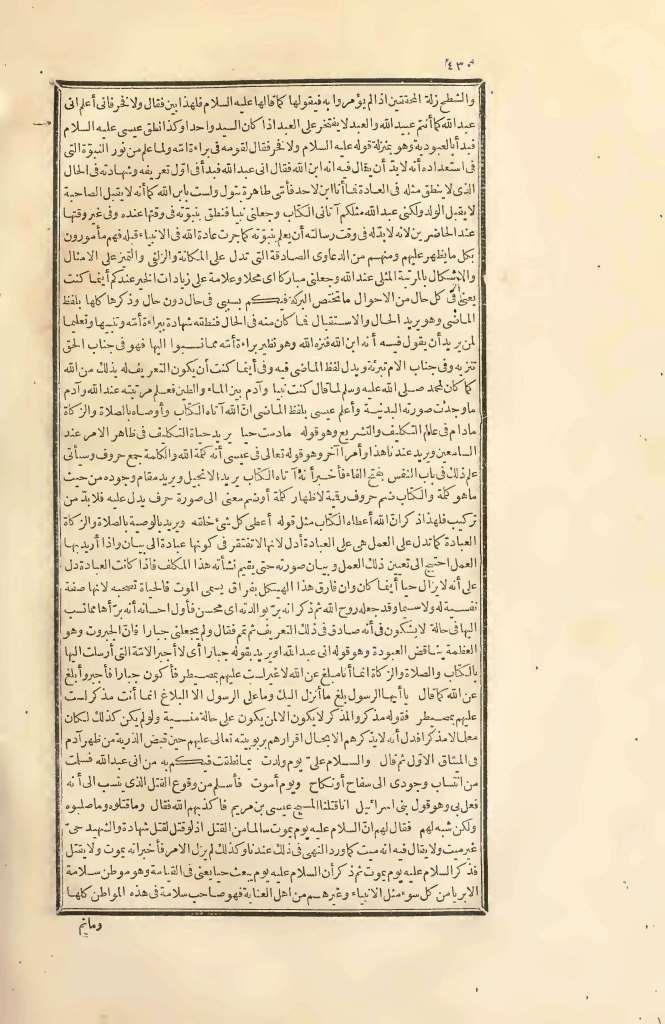 ٤٣٠
والشطح زلة المحققين اذا لم يؤمروا به فيقولها كما قالها عليه السلام فلهذا بين فقال ولا فخر فانى أعلم انى
عبد الله كما أنتم عبيد الله والعبد لا يفتخر على العبد اذا كان السيد واحد اوكذا نطق عيسى عليه السلام
فبدأ بالعبودية وهو بمنزلة قوله عليه السلام ولا فخر فقال لقومه فى براءة امته ولما علم من نور النبوّة التى
فى استعداده أنه لا بدّ أن يقال فيه انه ابن الله فقال انى عبد الله فبدأ فى اوّل تعريفه وشهادته فى الحال
الذى لا ينطق مثله فى العادة فما أنا ابن لاحد فأتى طاهرة بتول ولست بابن الله كما أنه لا يقبل الصاحبة
لا يقبل الولد ولكنى عبد الله مثلكم آتانى الكتاب وجعلنى نبيا فنطق بنبوّته فى وقتها عنده وفى غير وقتها
عند الحاضرين لانه لا بدّ له فى وقت رسالته أن يعلم بنبوّته كما جرت عادة الله فى الانبياء قبله فهم مأمورون
بكل ما يظهر عليهم ومنهم من الدعاوى الصادقة التى تدل على المكانة والزلفى والتميز على الامثال
والاشكال بالمرتبة المثلى عند الله وجعلنى مباركا اى محلا وعلامة على زيادات الخير عندكم أينما كنت
يعنى فى كل حال من الاحوال ما تختص البركة فيكم بسببى فى حال دون حال وذكرها كلها بلفظ
الماضى وهو يريد الحال والاستقبال فما كان منه فى الحال فنطقه شهادة ببراءة أمته وتنبيها وتعليما
لمن يريد أن يقول فيه أنه ابن الله فنزه الله وهو نظير براءة أمته مما نسبوا اليها فهو فى جناب الحق
تنزيه وفى جناب الام تبرئة ويدل لفظ الماضى فيه وفى أينما كنت أن يكون التعريف له بذلك من الله
كما كان لمحمد صلى الله عليه وسلم لما قال كنت نبيا وآدم بين الماء والطين فعلم مرتبته عند الله وآدم
ما وجدت صورته البدنية وأعلم عيسى بلفظ الماضى انّ الله آتاه الكتاب وأوصاه بالصلاة والزكاة
مادام فى عالم التكليف والتشريع وهو قوله مادمت حيا يريد حياة التكليف فى ظاهر الامر عند
السامعين ويريد عندنا هذا وأمرا آخر وهو قوله تعالى فى عيسى أنه كلمة الله والكلمة جمع حروف وسيأتى
علم ذلك فى باب النفس بفتح الفاء فأخبر أنه آتاه الكتاب يريد الانجيل ويريد مقام وجوده من حيث
ماهو كلمة والكتاب ضم حروف رقية لاظهار كلمة أو ضم معنى الى صورة حرف يدل عليه فلا بدّ من
تركيب فلهذا ذكر انّ الله أعطاه الكتاب مثل قوله أعطى كل شئ خلقه ويريد بالوصية بالصلاة والزكاة
العبادة كما تدل على العمل هى على العبادة أدل لانها لا تفتقر فى كونها عبادة الى بيان واذا أريد بها
العمل احتيج الى تعيين ذلك العمل وبيان صورته حتى يقيم نشأته هذا المكلف فاذا كانت العبادة دل
على أنه لا يزال حيا أينما كان وان فارق هذا الهيكل بفراق يسمى الموت فالحياة تصحبه لانها صفة
نفسية له ولا سيما وقد جعله روح الله ثم ذكر انه برّ بوالدته اى محسن فأول احسانه أنه برّأها مما نسب
اليها فى حالة لا يشكون فى أنه صادق فى ذلك التعريف ثم تمم فقال ولم يجعلنى جبارا فانّ الجبروت وهو
العظمة يناقض العبودة وهو قوله انى عبد الله اويريد بقوله جبارا أى لا أجبر الامّة التى أرسلت اليها
بالكتاب والصلاة والزكاة انما أنا مبلغ عن الله لا غير لست عليهم بمصيطر فأكون جبارا فأجبر وأبلغ
عن الله كما قال يا أيها الرسول بلغ ما أنزل اليك وما على الرسول الا البلاغ انما أنت مذكر لست
عليهم بمصيطر فقوله مذكر والمذكر لا يكون الا لمن يكون على حالة منسية ولو لم يكن كذلك لكان
معلما لا مذكرا فدل أنه لا يذكرهم الا بحال اقرارهم بربوبيته تعالى عليهم حين قبض الذرية من ظهر آدم
فى الميثاق الاوّل ثم قال والسلام علىّ يوم ولدت بما نطقت فيكم به من انى عبد الله فسلمت
من انتساب وجودى الى سفاح أونكاح ويوم أموت فأسلم من وقوع القتل الذى ينسب الى أنه
فعل بى وهو قول بنى اسرائيل انا قتلنا المسيح عيسى بن مريم فأكذبهم الله فقال وما قتلوه وما صلبوه
ولكن شبه لهم فقال لهم انّ السلام عليه يوم يموت سالما من القتل اذ لو قتل لقتل شهادة والشهيد حىّ
غير ميت ولا يقال فيه انه ميت كما ورد النهى فى ذلك عندنا وكذلك لم يزل الامر فأخبر انه يموت ولا يقتل
فذكر السلام عليه يوم يموت ثم ذكر أن السلام عليه يوم يبعث حيا يعنى فى القيامة وهو موطن سلامة
الابرياء من كل سوء مثل الانبياء وغيرهم من اهل العناية فهو صاحب سلامة فى هذه المواطن كلها
وما ثم